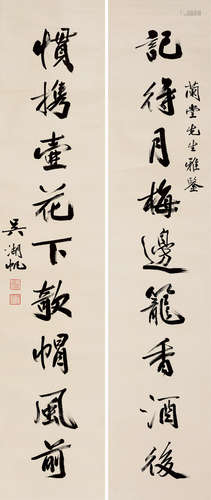 蘭堂先生雅鑒
記得月梅邊籠香酒後
慣攜壺花下欹帽風前
吳湖帆